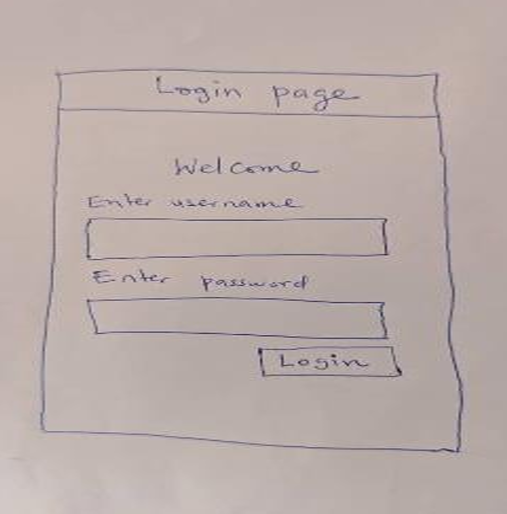 Login page
Welcome
Enter username
Enter password
Login